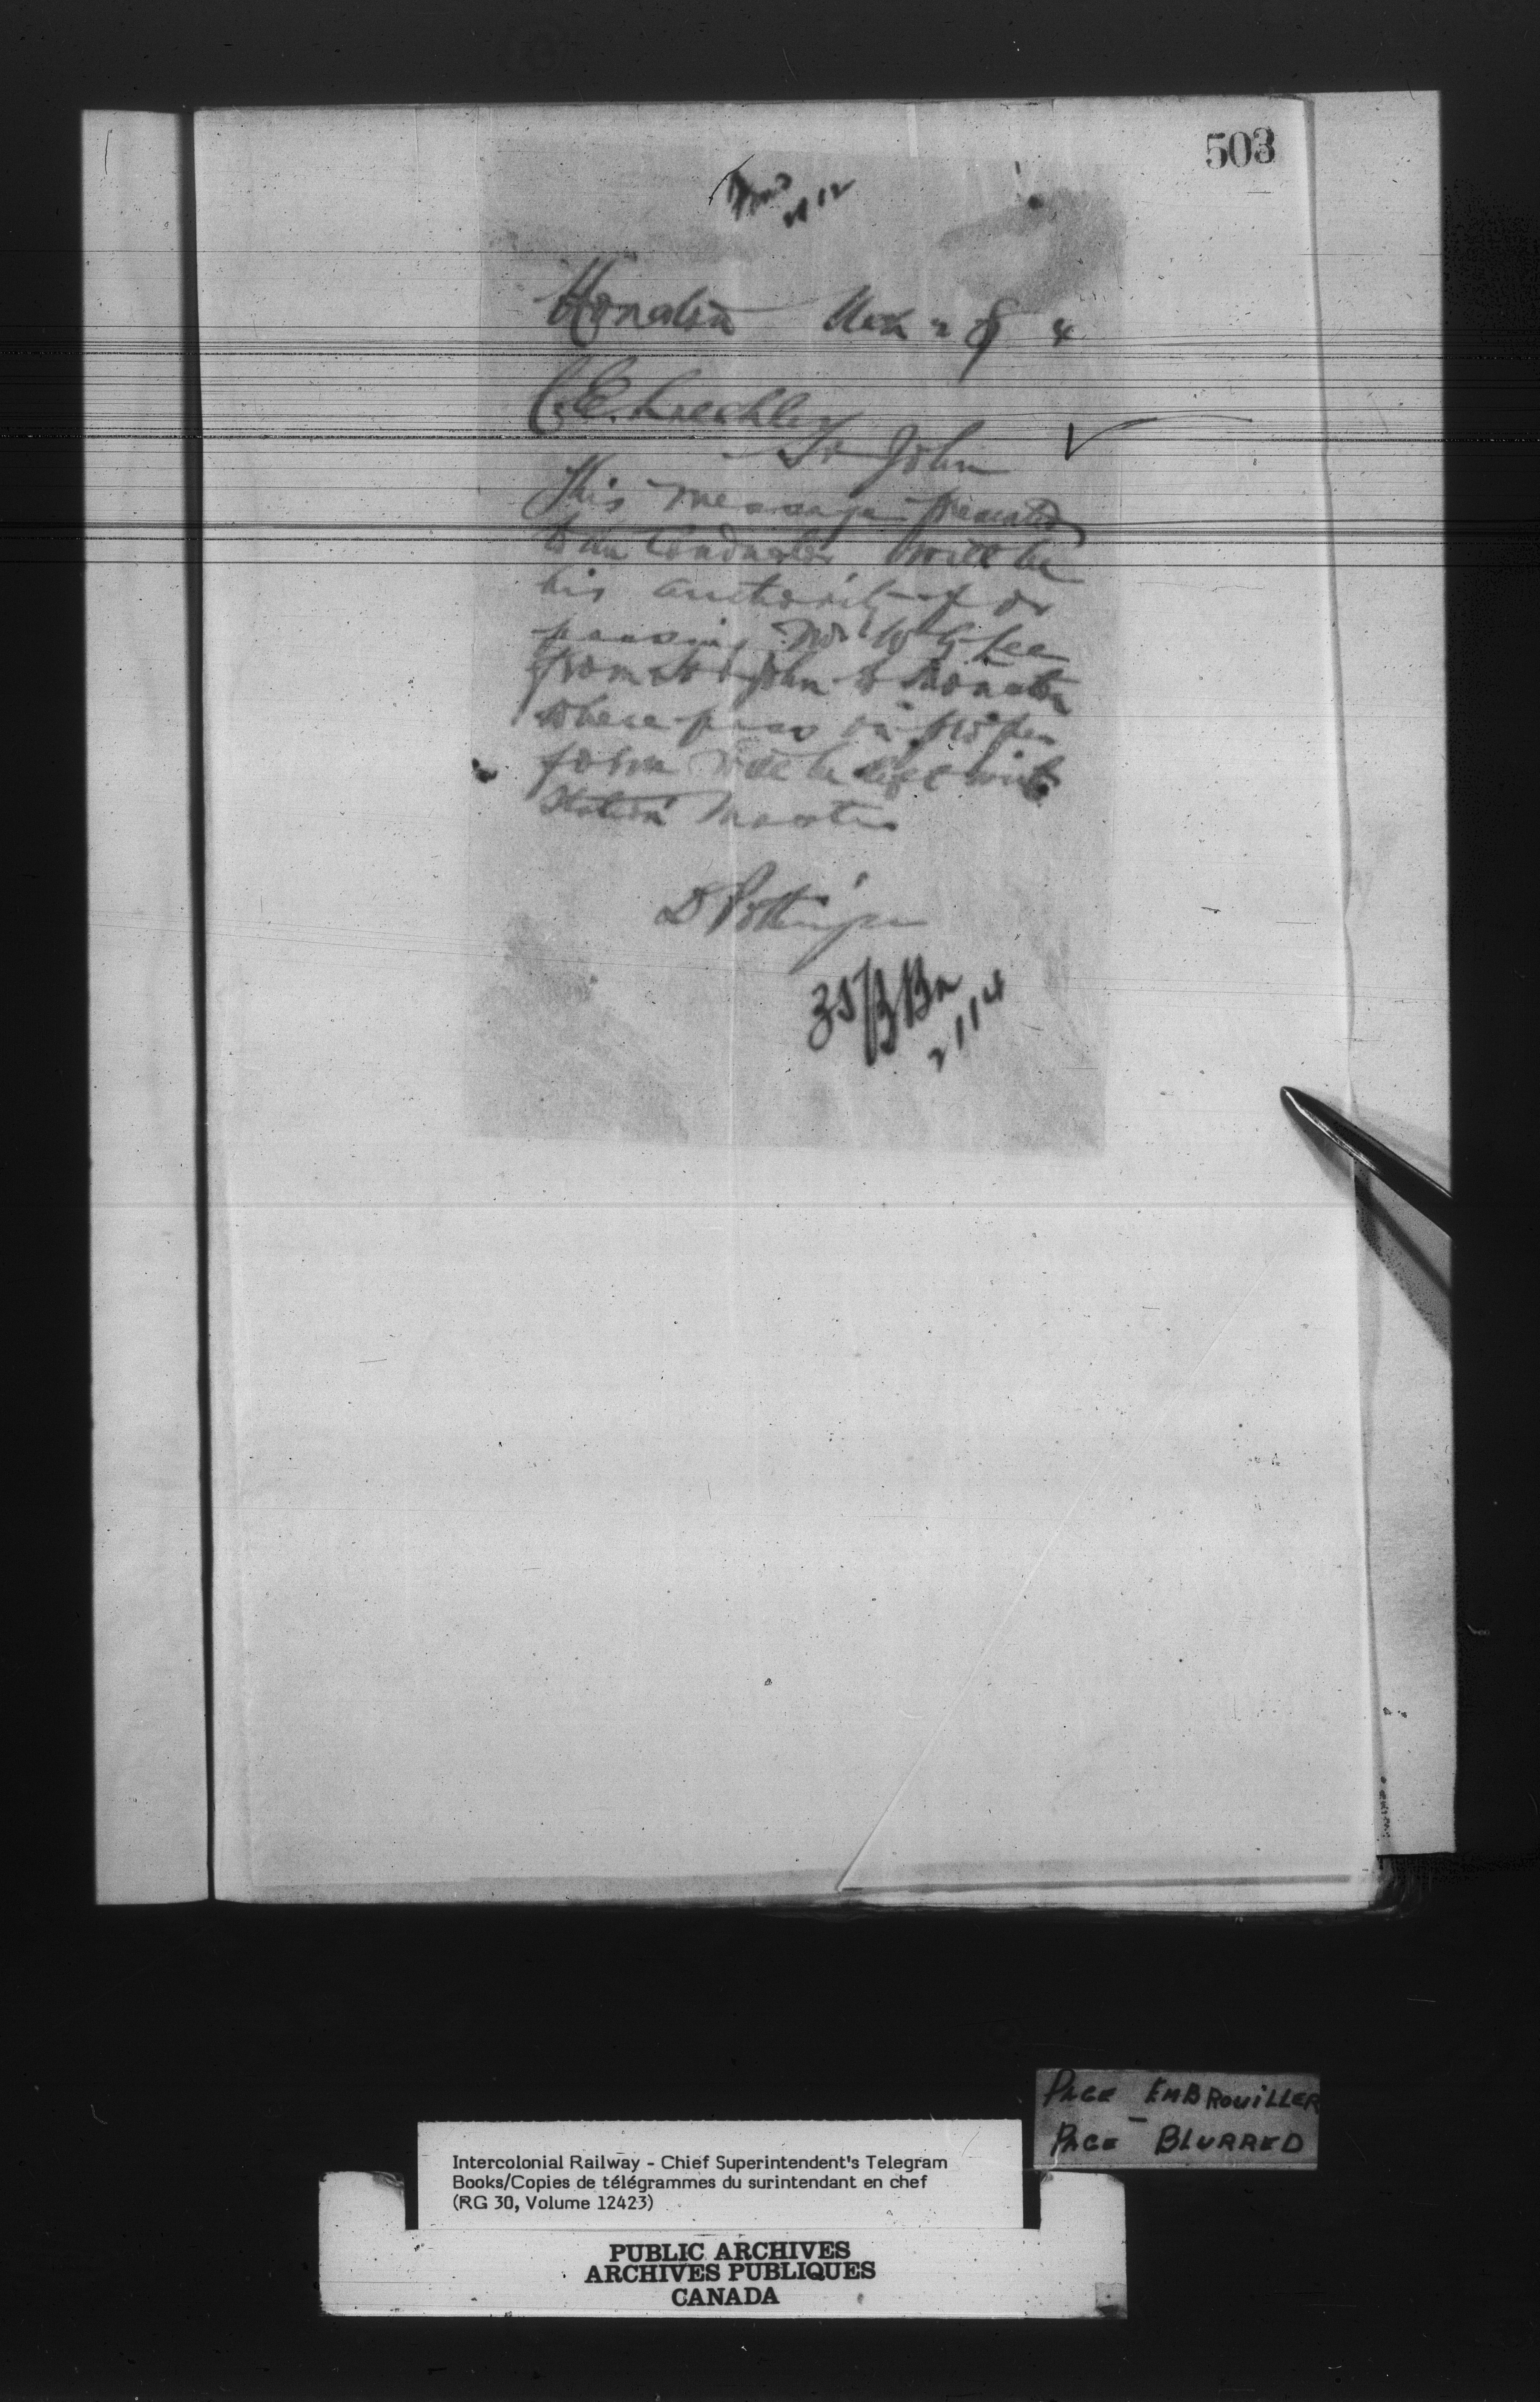 503
Moncton
C.E.
St John
This message presented
to the Conductor will be
his authority for
passing Mr Lee
from St John to Moncton
where pass in proper
form will be left with
Station Master
D Pottinger
PAGE EMBROUILLER
PAGE - BLURRED
Intercolonial Railway - Chief Superintendent's Telegram
Books/Copies de télégrammes du surintendant en chef
(RG 30, Volume 12423)
PUBLIC ARCHIVES
ARCHIVES PUBLIQUES
CANADA